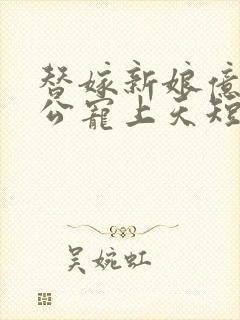 替嫁新娘億
公寵上天短
吴婉虹